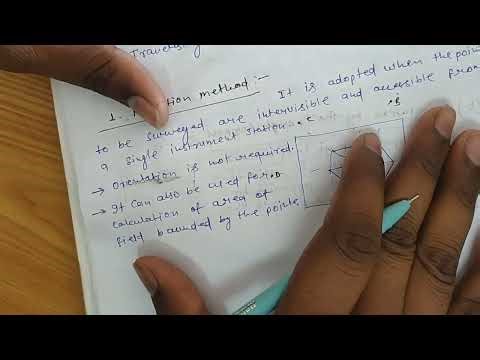 Traversing
1. method :-
It is adopted when the points
to be surveyed are intervisible and accessible from
a single instrument station.
→ Orientation is not required.
→ It can also be used for
calculation of area of
field bounded by the points
.C
.B
.D